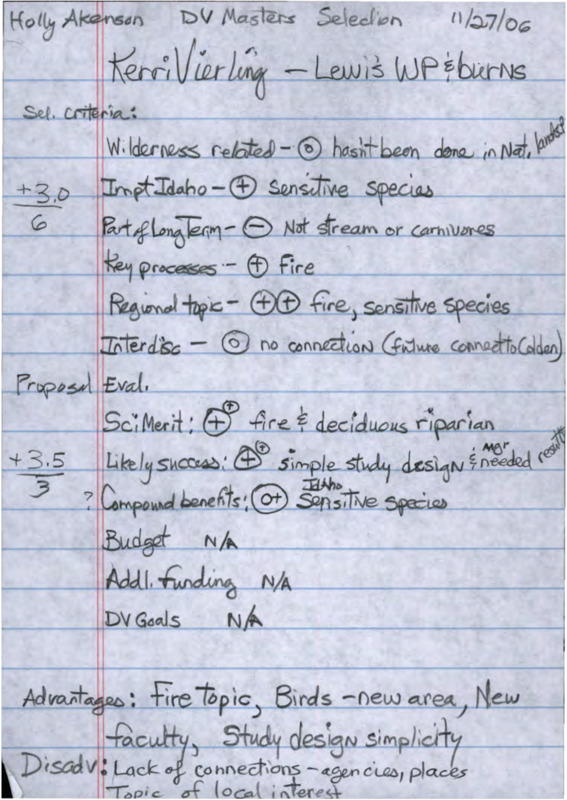 Holly Akenson DV Masters Selection 11/27/06
Kerri Vierling - Lewis WP & burns
Sel. criteria:
Wilderness related - ⓪ hasn't been done in Nat. landsc
+3.0/6 Impt Idaho - ⊕ Sensitive species
Part of Long Term - ⊖ Not stream or carnivores
Key processes - ⊕ Fire
Regional topic - ⊕⊕ fire, sensitive species
Interdisc - ⓪ no connection (future connect to Colden)
Proposal Eval.
Sci Merit: ⊕⊕ fire & deciduous riparian
+3.5/3 Likely success: ⊕⊕ simple study design & Mgr needed results
? Compound benefits: (0+) Idaho Sensitive Species
Budget N/A
Addl. funding N/A
DV Goals N/A
Advantages: Fire topic, Birds - new area, New
faculty, Study design simplicity
Disadv: Lack of connections - agencies, places
Topic of local interest